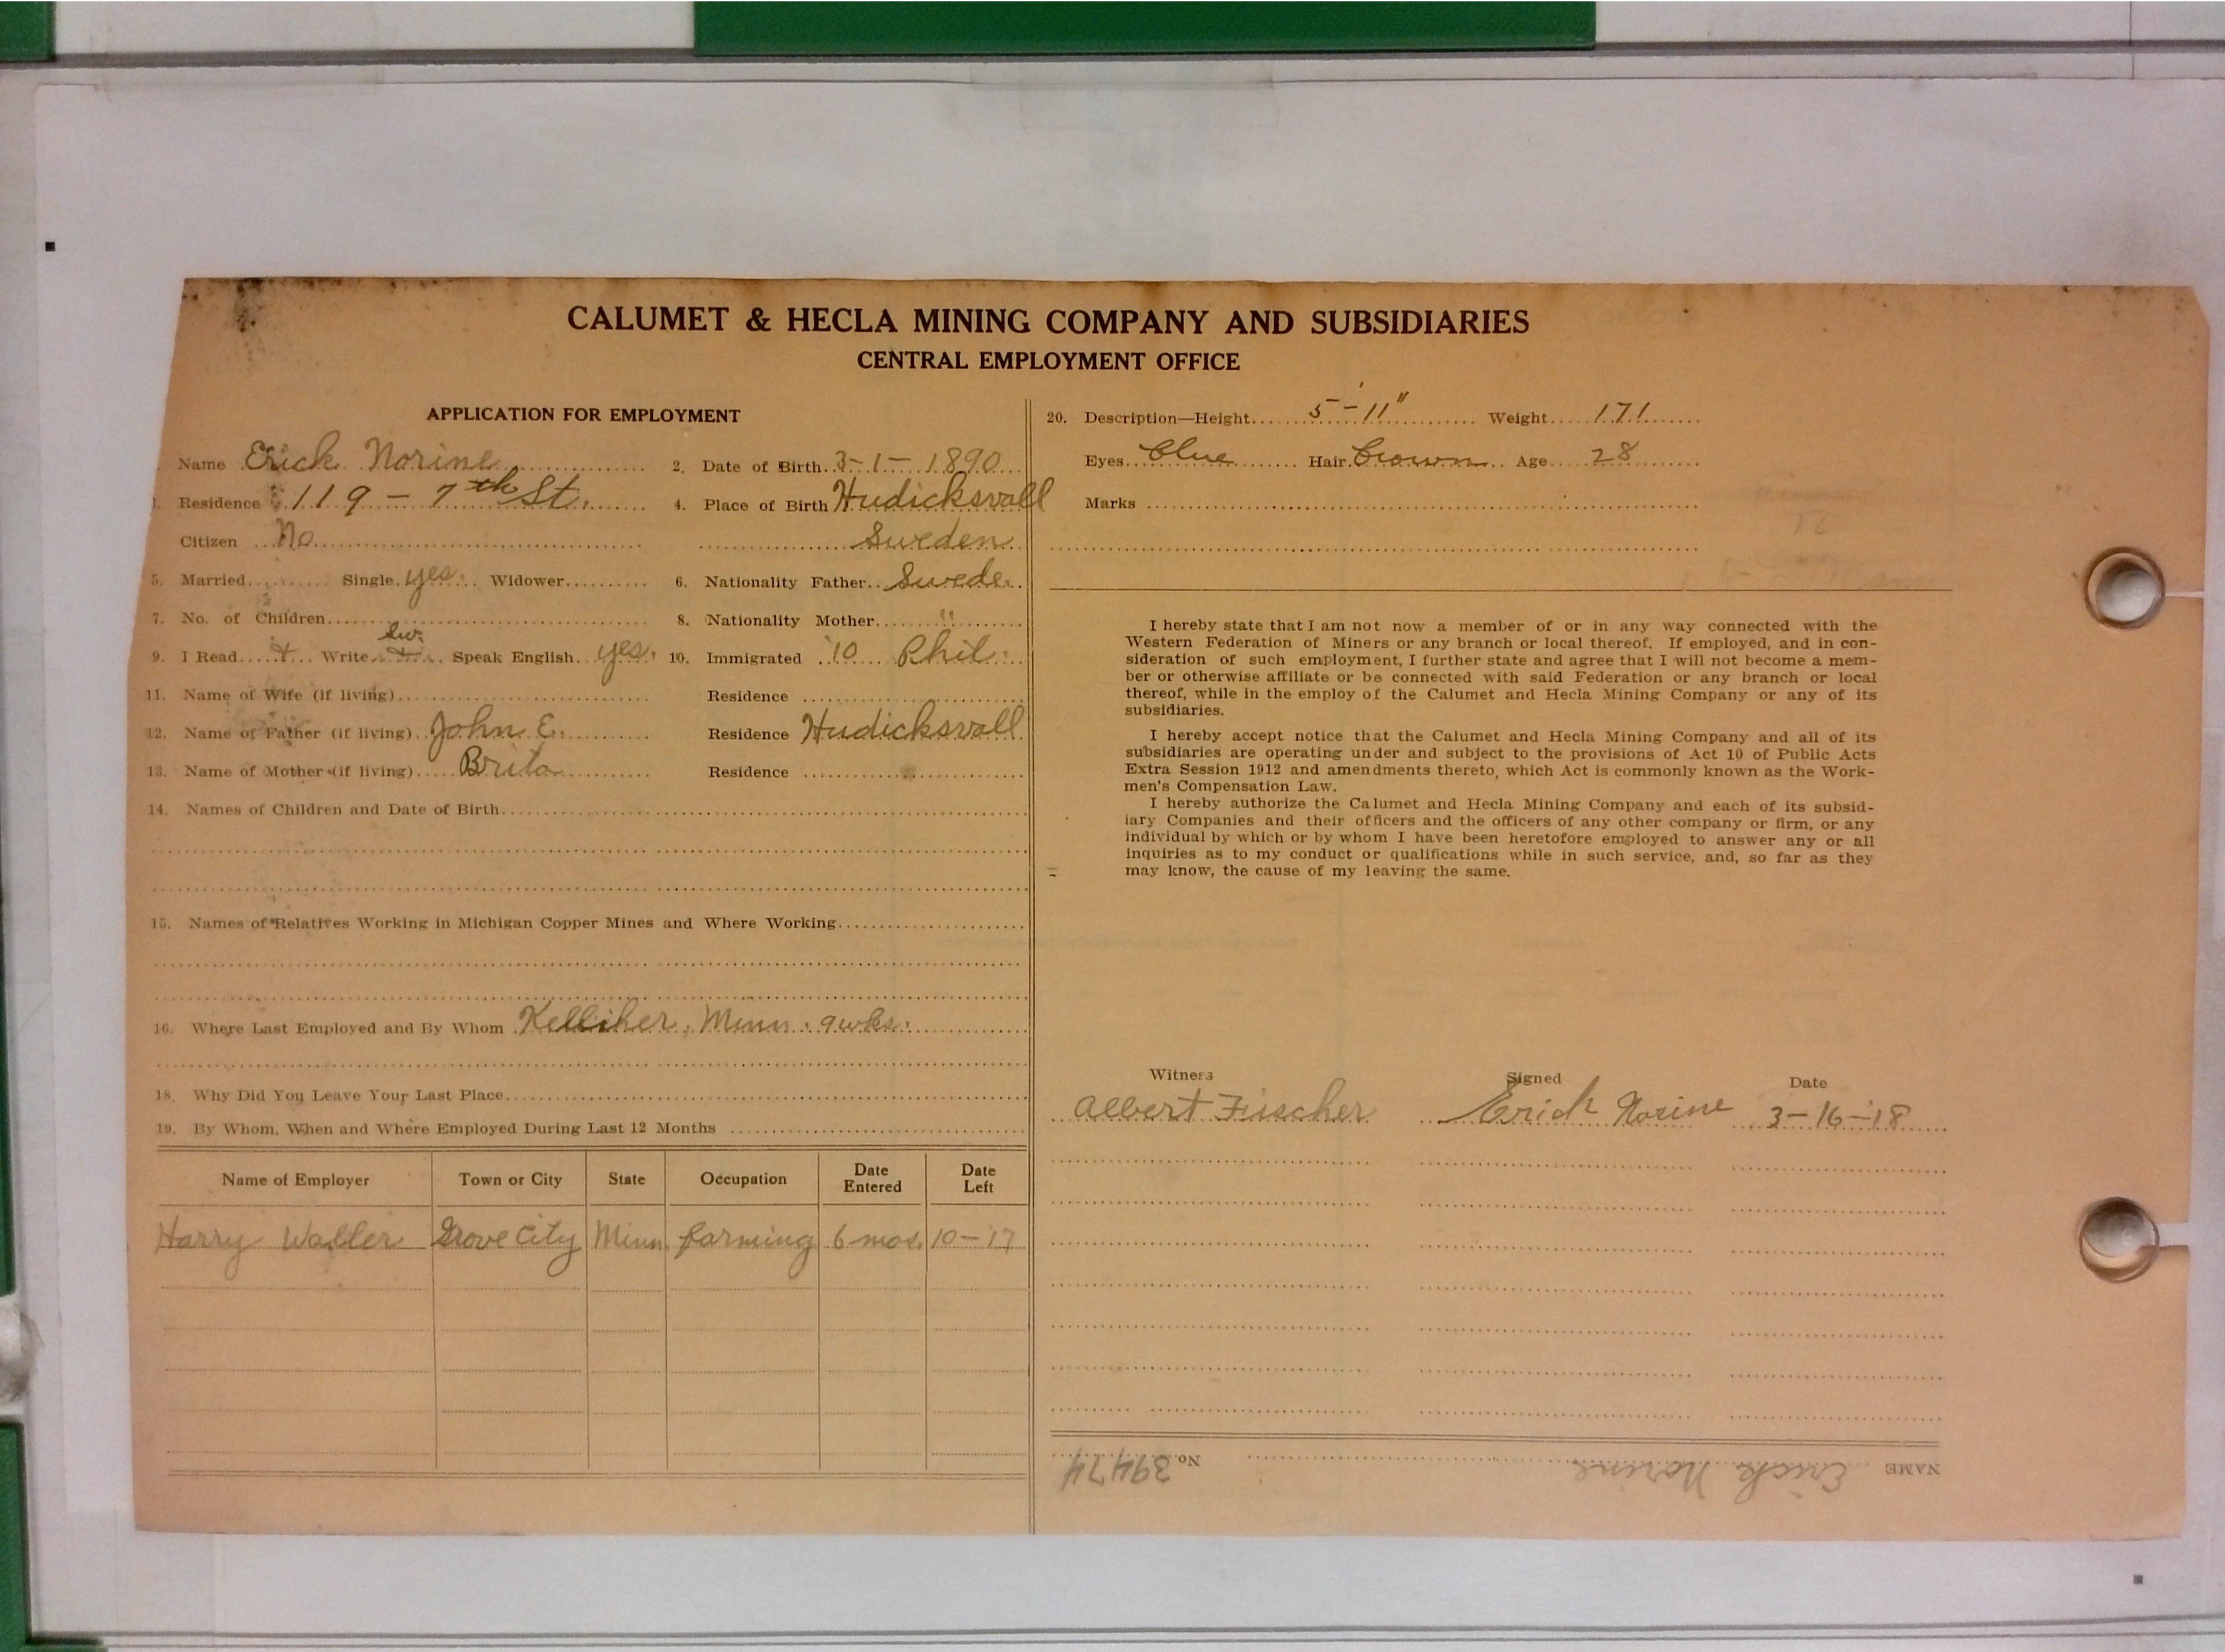 CALUMET & HECLA MINING COMPANY AND SUBSIDIARIES
CENTRAL EMPLOYMENT OFFICE
APPLICATION FOR EMPLOYMENT
Name Erick Norine
2. Date of Birth 3-1-1890
Residence 119 - 7th St.
4. Place of Birth Hudicksvall
Citizen No
Sweden
5. Married Single yes. Widower
6. Nationality Father Swede.
7. No. of Children
8. Nationality Mother "
Sw.
9. I Read + Write + Speak English yes.
10. Immigrated '10 Phil.
11. Name of Wife (if living)
Residence
12. Name of Father (if living) John E.
Residence Hudicksvall
13. Name of Mother (if living) Brita
Residence
14. Names of Children and Date of Birth
15. Names of Relatives Working in Michigan Copper Mines and Where Working
16. Where Last Employed and By Whom Kelliher, Minn. 9 wks.
18. Why Did You Leave Your Last Place
19. By Whom, When and Where Employed During Last 12 Months
Name of Employer Town or City State Occupation Date Entered Date Left
Harry Waller Grove City Minn. farming 6 mos. 10-'17
20. Description—Height 5'-11" Weight 171
Eyes Blue Hair Brown Age 28
Marks
I hereby state that I am not now a member of or in any way connected with the
Western Federation of Miners or any branch or local thereof. If employed, and in con-
sideration of such employment, I further state and agree that I will not become a mem-
ber or otherwise affiliate or be connected with said Federation or any branch or local
thereof, while in the employ of the Calumet and Hecla Mining Company or any of its
subsidiaries.
I hereby accept notice that the Calumet and Hecla Mining Company and all of its
subsidiaries are operating under and subject to the provisions of Act 10 of Public Acts
Extra Session 1912 and amendments thereto, which Act is commonly known as the Work-
men's Compensation Law.
I hereby authorize the Calumet and Hecla Mining Company and each of its subsid-
iary Companies and their officers and the officers of any other company or firm, or any
individual by which or by whom I have been heretofore employed to answer any or all
inquiries as to my conduct or qualifications while in such service, and, so far as they
may know, the cause of my leaving the same.
Witness Signed Date
Albert Fischer Erick Norine 3-16-18
NAME Erick Norine No. 39474